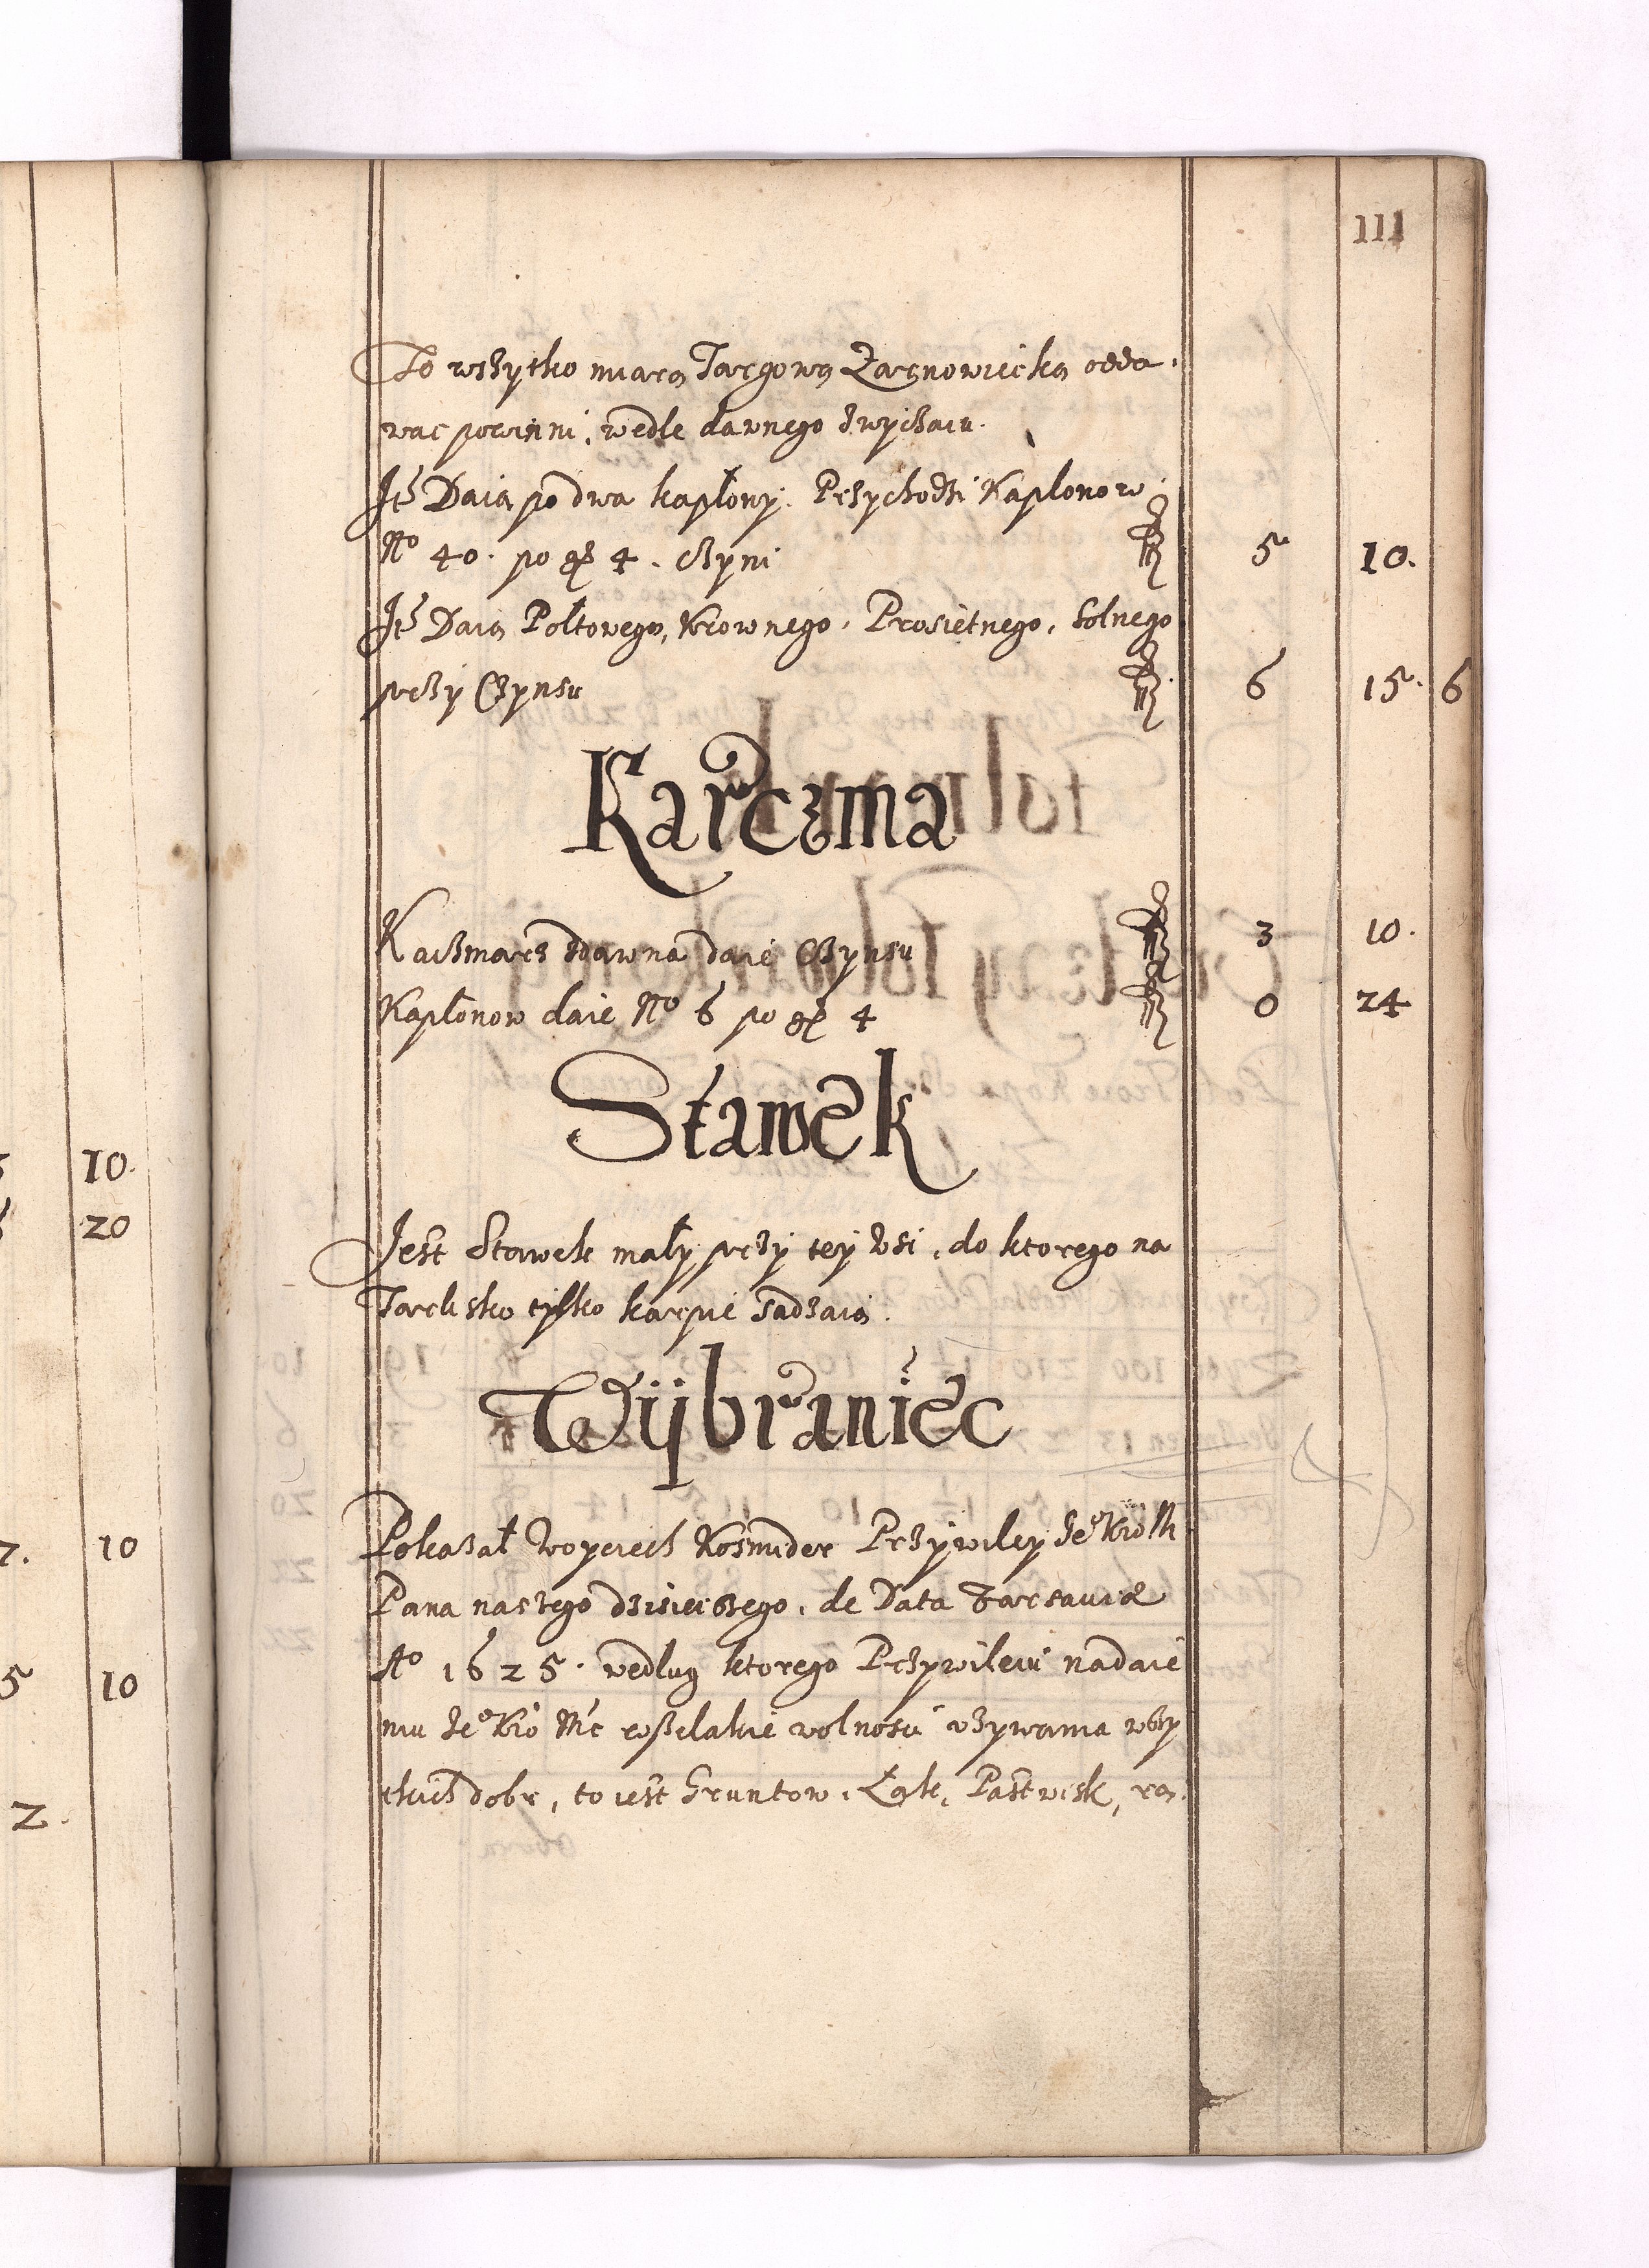 111
To wszytko miarą Targową Żarnowiecką odda-
wac powinni, wedle dawnego zwyczaiu.
Daią po dwa kapłony. Przychodzi Kapłonow
No 40. po 4. czyni 5 10.
Daią Połtowego, Krownego, Prosiętnego, Solnego
przy Czynsu 6 15. 6
Karczma
Kaczmarz zdawna daie Czynsu 3 10.
Kapłonow daie No 6 po 4 0 24
Stawek
Jest Stawek mały przy tey wsi, do ktorego na
Tarlisko tylko karpie sadzaią.
Wybraniec
Pokazał Woyciech Kosmider Przywiley Je° Kro M
Pana naszego dzisieiszego, de Data Varsaviæ
Ao 1625. wedlug ktorego Przywileiu nadaie
mu Je° Kro Mc wszelakie wolnosci vzywania wszy
tkich dobr, to iest Gruntow, Łąk, Pastwisk,
10.
20
7. 10
5 10
2.